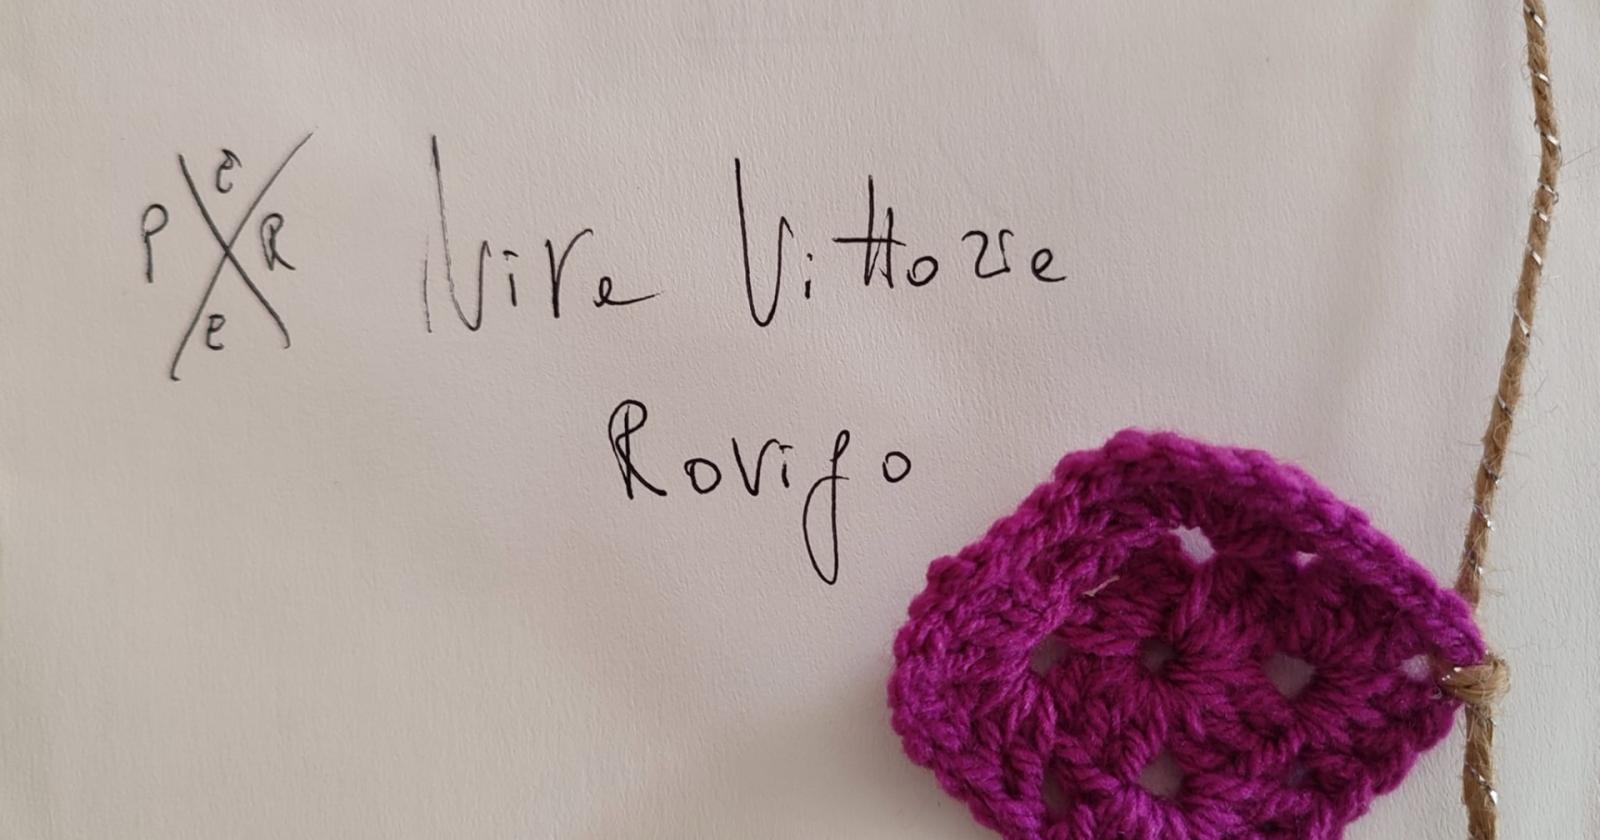 P e R e Nive Vittore
Rovigo